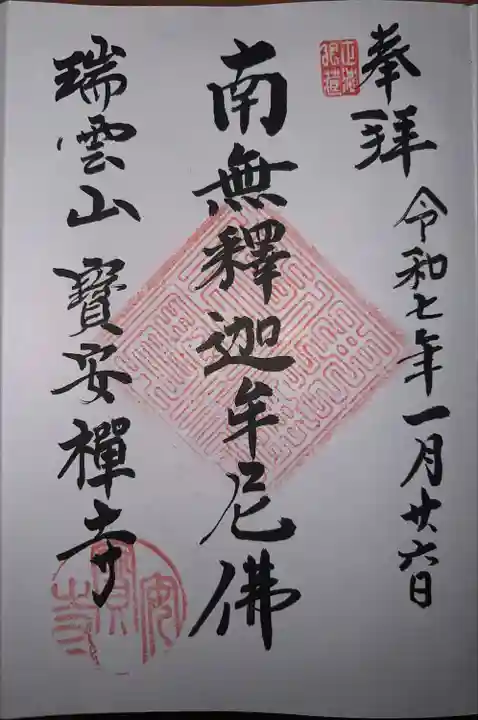 奉拜
令和七年一月廿六日
南無釋迦牟尼佛
瑞雲山寶安禪寺
寶安寺